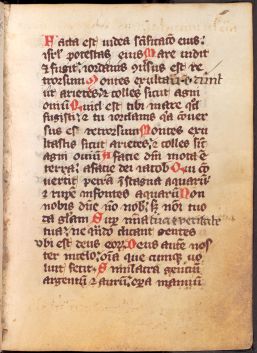 Facta est iudea sanctificatio eius:
isrl potestas eius Mare vidit
et fugit: iordanis uersus est re
trorsum Montes exultauerunt
ut arietes: et colles sicut agni
ouium Quid est tibi mare quod
fugisti: et tu iordanis quia conuer
sus es retrorsum Montes ex
ultastis sicut arietes: et colles sicut
agni ouium A facie dni mota est
terra: a facie dei iacob Qui con
uertit petra in stagna aquarum:
et rupem in fontes aquarum Non
nobis dne no nobis: sed noi tuo
da glam Sup mia tua et veritate
tua: ne qndo dicant gentes
vbi est deus eorum Deus aute nos
ter in celo: oia que cumqz uo
luit fecit Simulacra gencium
argentum et aurum: opa manuum